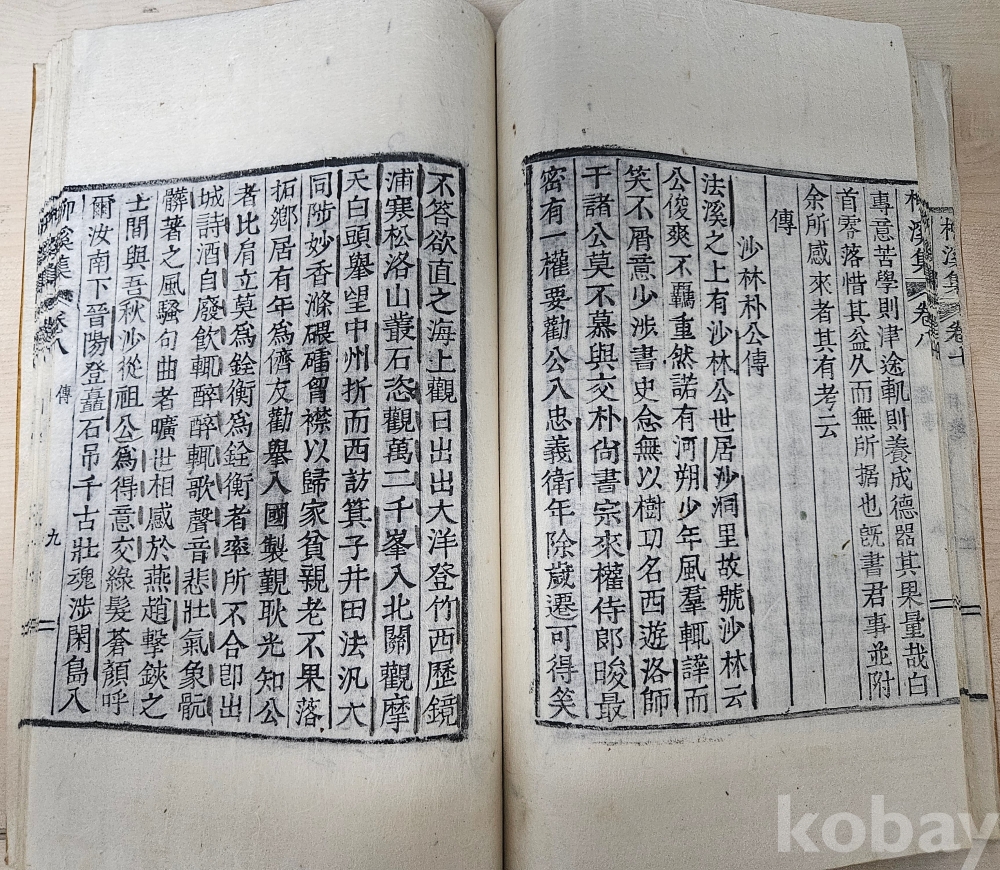 溪集 卷十
溪集 卷八
專意苦學則津途軏則養成德器其果量哉白
首零落惜其益久而無所据也旣書君事並附
余所感來者其有考云
傳
沙林朴公傳
法溪之上有沙林公世居沙洞里故號沙林云
公俊爽不羈重然諾有河朔少年風羣輒譁而
笑不屑意少涉書史念無以樹功名西遊洛師
干諸公莫不慕與交朴尙書宗來權侍郞晙最
密有一權要勸公入忠義衛年除歲遷可得笑
不答欲直之海上觀日出出大洋登竹西歷鏡
浦寒松洛山叢石恣觀萬二千峯入北關觀摩
天白頭擧望中州折而西訪箕子井田法汎大
同陟妙香滌磈礌胷襟以歸家貧親老不果落
拓鄕居有年爲儕友勸擧入國製觀耿光知公
者比肩立莫爲銓衡爲銓衡者率所不合卽出
城詩酒自廢飮輒醉醉輒歌聲音悲壯氣象骯
髒著之風騷句曲者曠世相感於燕趙擊鋏之
士間與吾秋沙從祖公爲得意交綠髮蒼顔呼
爾汝南下晉陽登矗石吊千古壯魂涉閑島入
溪集 卷八 傳 九
kobay